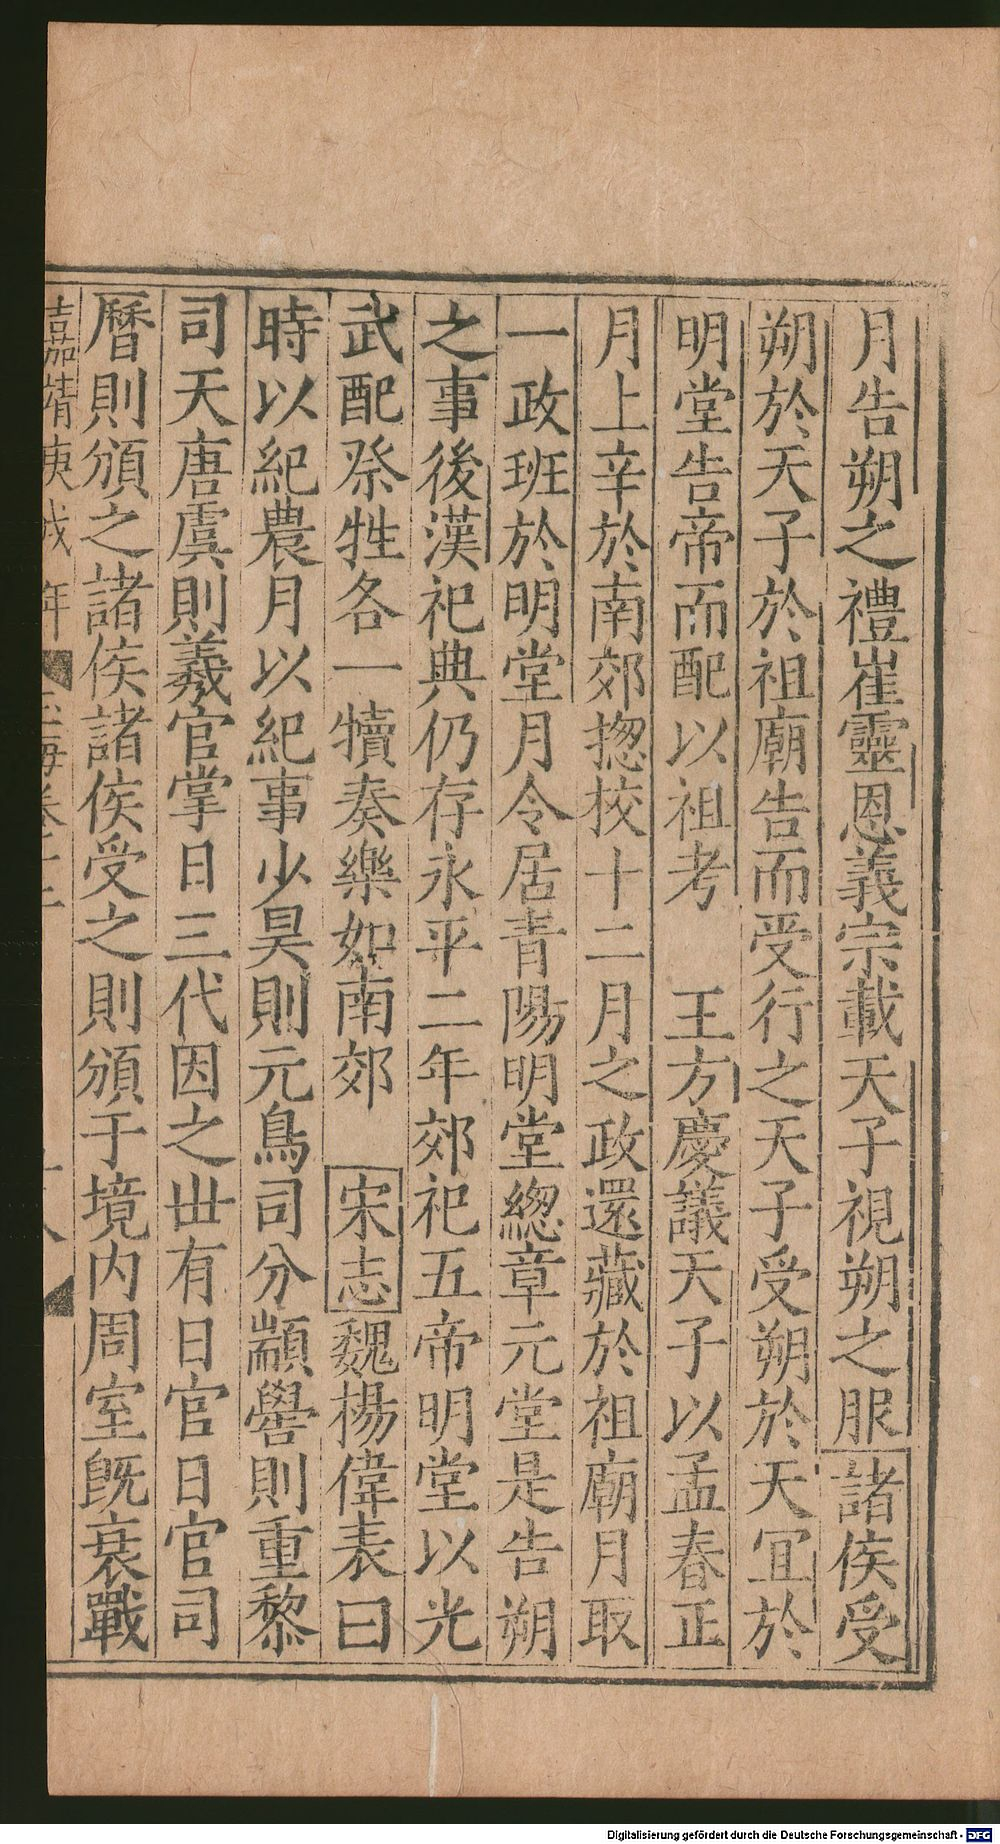 月告朔之禮崔靈恩義宗載天子視朔之服諸侯受
朔於天子於祖廟告而受行之天子受朔於天宜於
明堂告帝而配以祖考　王方慶議天子以孟春正
月上辛於南郊揔校十二月之政還藏於祖廟月取
一政班於明堂月令居青陽明堂緫章元堂是告朔
之事後漢祀典仍存永平二年郊祀五帝明堂以光
武配祭牲各一犢奏樂如南郊　宋志魏揚偉表曰
時以紀農月以紀事少昊則元鳥司分顓嚳則重黎
司天唐虞則羲官掌日三代因之丗有日官日官司
曆則頒之諸侯諸侯受之則頒于境内周室旣衰戰
嘉靖庚戌年
Digitalisierung gefördert durch die Deutsche Forschungsgemeinschaft - DFG